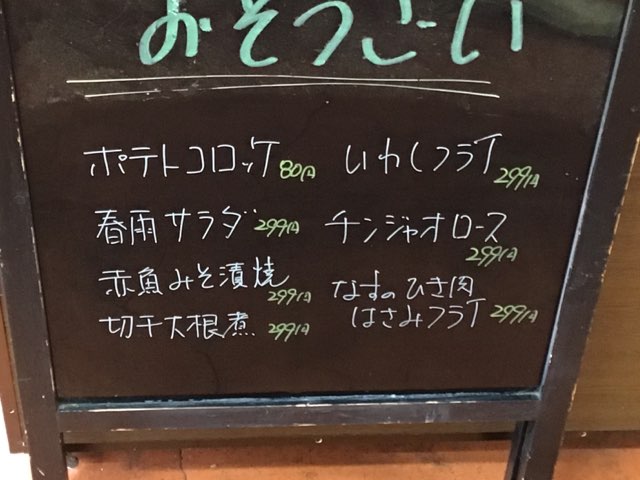 おそうざい
ポテトコロッケ 80円
春雨サラダ 299円
赤魚みそ漬焼 299円
切干大根煮 299円
いわしフライ 299円
チンジャオロース 299円
なすのひき肉
はさみフライ 299円